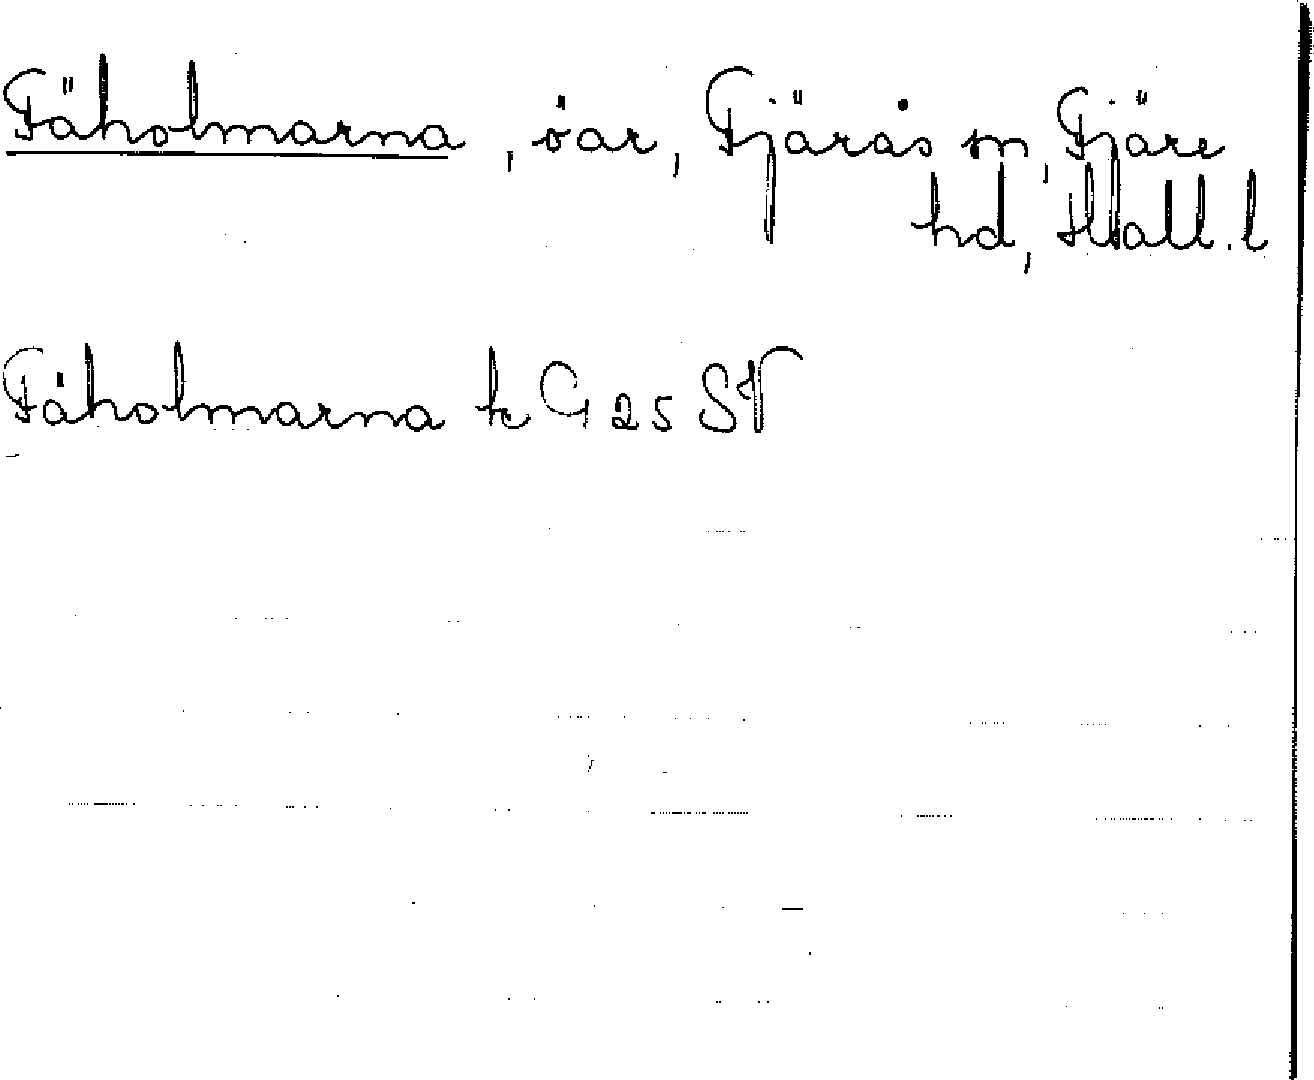 Fäholmarna, öar, Fjärås sn, Fjäre
hd, Hall. l
Fäholmarna tc G 25 SV